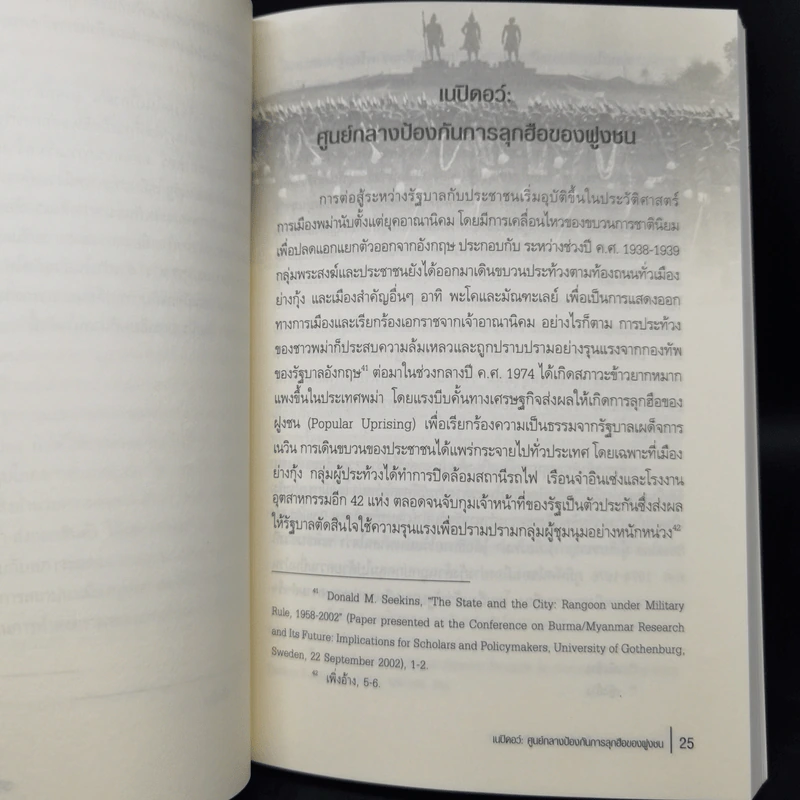 เนปิดอว์:
ศูนย์กลางป้องกันการลุกฮือของฝูงชน
การต่อสู้ระหว่างรัฐบาลกับประชาชนเริ่มอุบัติขึ้นในประวัติศาสตร์
การเมืองพม่านับตั้งแต่ยุคอาณานิคม โดยมีการเคลื่อนไหวของขบวนการชาตินิยม
เพื่อปลดแอกแยกตัวออกจากอังกฤษ ประกอบกับ ระหว่างช่วงปี ค.ศ. 1938-1939
กลุ่มพระสงฆ์และประชาชนยังได้ออกมาเดินขบวนประท้วงตามท้องถนนทั่วเมือง
ย่างกุ้ง และเมืองสำคัญอื่นๆ อาทิ พะโคและมัณฑะเลย์ เพื่อเป็นการแสดงออก
ทางการเมืองและเรียกร้องเอกราชจากเจ้าอาณานิคม อย่างไรก็ตาม การประท้วง
ของชาวพม่าก็ประสบความล้มเหลวและถูกปราบปรามอย่างรุนแรงจากกองทัพ
ของรัฐบาลอังกฤษ⁴¹ ต่อมาในช่วงกลางปี ค.ศ. 1974 ได้เกิดสภาวะข้าวยากหมาก
แพงขึ้นในประเทศพม่า โดยแรงบีบคั้นทางเศรษฐกิจส่งผลให้เกิดการลุกฮือของ
ฝูงชน (Popular Uprising) เพื่อเรียกร้องความเป็นธรรมจากรัฐบาลเผด็จการ
เนวิน การเดินขบวนของประชาชนได้แพร่กระจายไปทั่วประเทศ โดยเฉพาะที่เมือง
ย่างกุ้ง กลุ่มผู้ประท้วงได้ทำการปิดล้อมสถานีรถไฟ เรือนจำอินเซ่งและโรงงาน
อุตสาหกรรมอีก 42 แห่ง ตลอดจนจับกุมเจ้าหน้าที่ของรัฐเป็นตัวประกันซึ่งส่งผล
ให้รัฐบาลตัดสินใจใช้ความรุนแรงเพื่อปรามปรามกลุ่มผู้ชุมนุมอย่างหนักหน่วง⁴²
⁴¹ Donald M. Seekins, "The State and the City: Rangoon under Military
Rule, 1958-2002" (Paper presented at the Conference on Burma/Myanmar Research
and Its Future: Implications for Scholars and Policymakers, University of Gothenburg,
Sweden, 22 September 2002), 1-2.
⁴² เพิ่งอ้าง, 5-6.
เนปิดอว์: ศูนย์กลางป้องกันการลุกฮือของฝูงชน 25